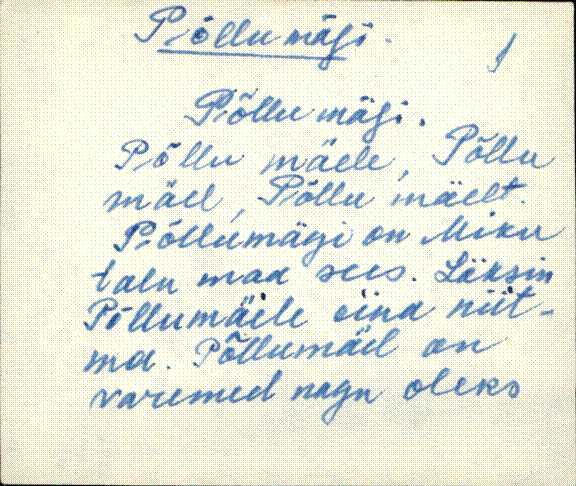 Põllumägi.
Põllu mägi.
Põllu mäele, Põllu
mäel, Põllu mäelt.
Põllumägi on Miku
talu maa sees. Läksin
Põllumäele eina niit-
ma. Põllumäel on
varemed nagu oleks